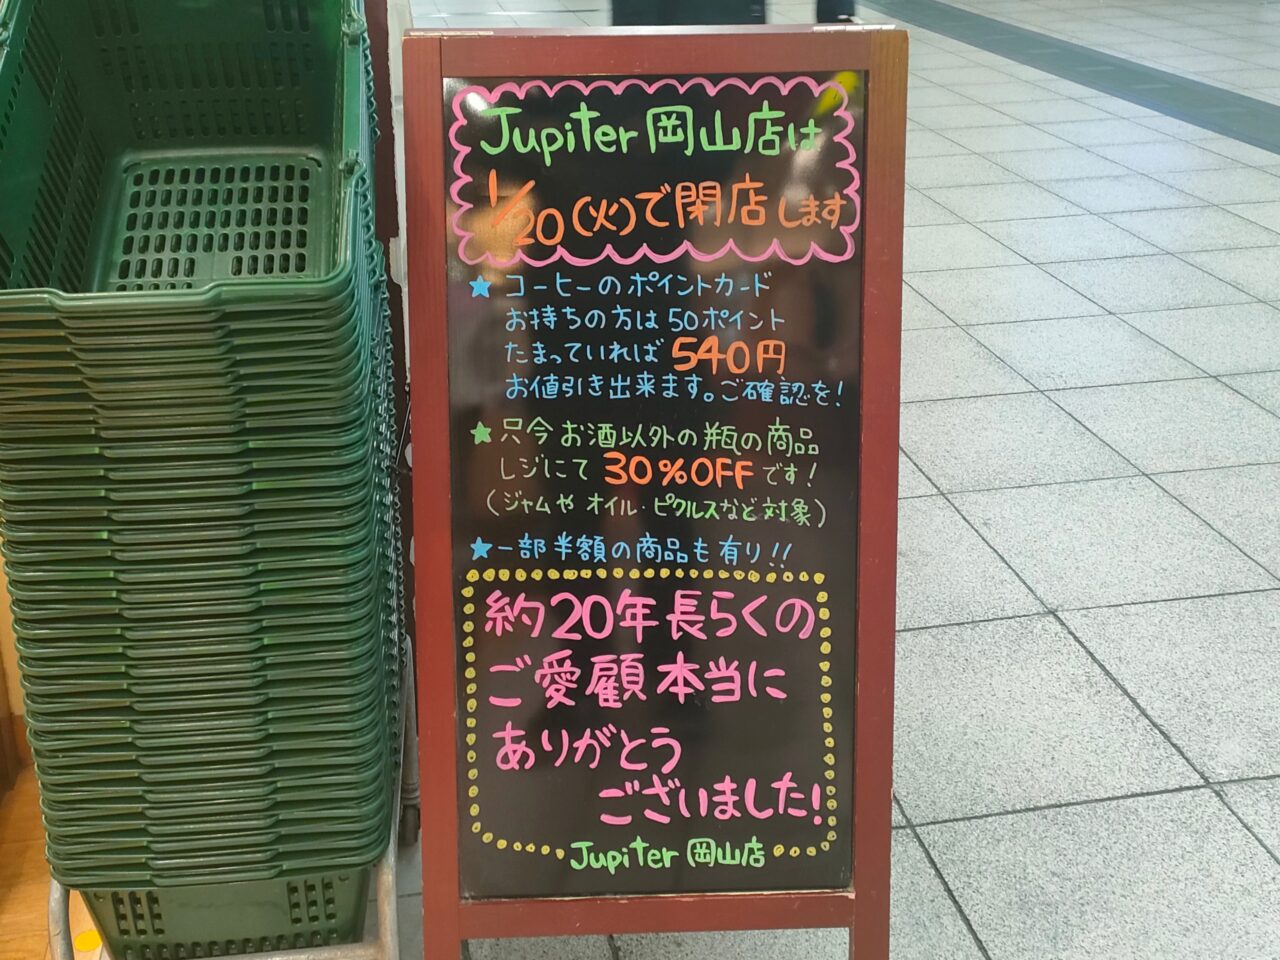 Jupiter 岡山店は
1/20(火)で閉店します
★コーヒーのポイントカード
お持ちの方は50ポイント
たまっていれば540円
お値引き出来ます。ご確認を!
★只今お酒以外の瓶の商品
レジにて30%OFFです!
(ジャムや オイル・ピクルスなど対象)
★一部半額の商品も有り!!
約20年長らくの
ご愛顧本当に
ありがとう
ございました!
Jupiter 岡山店